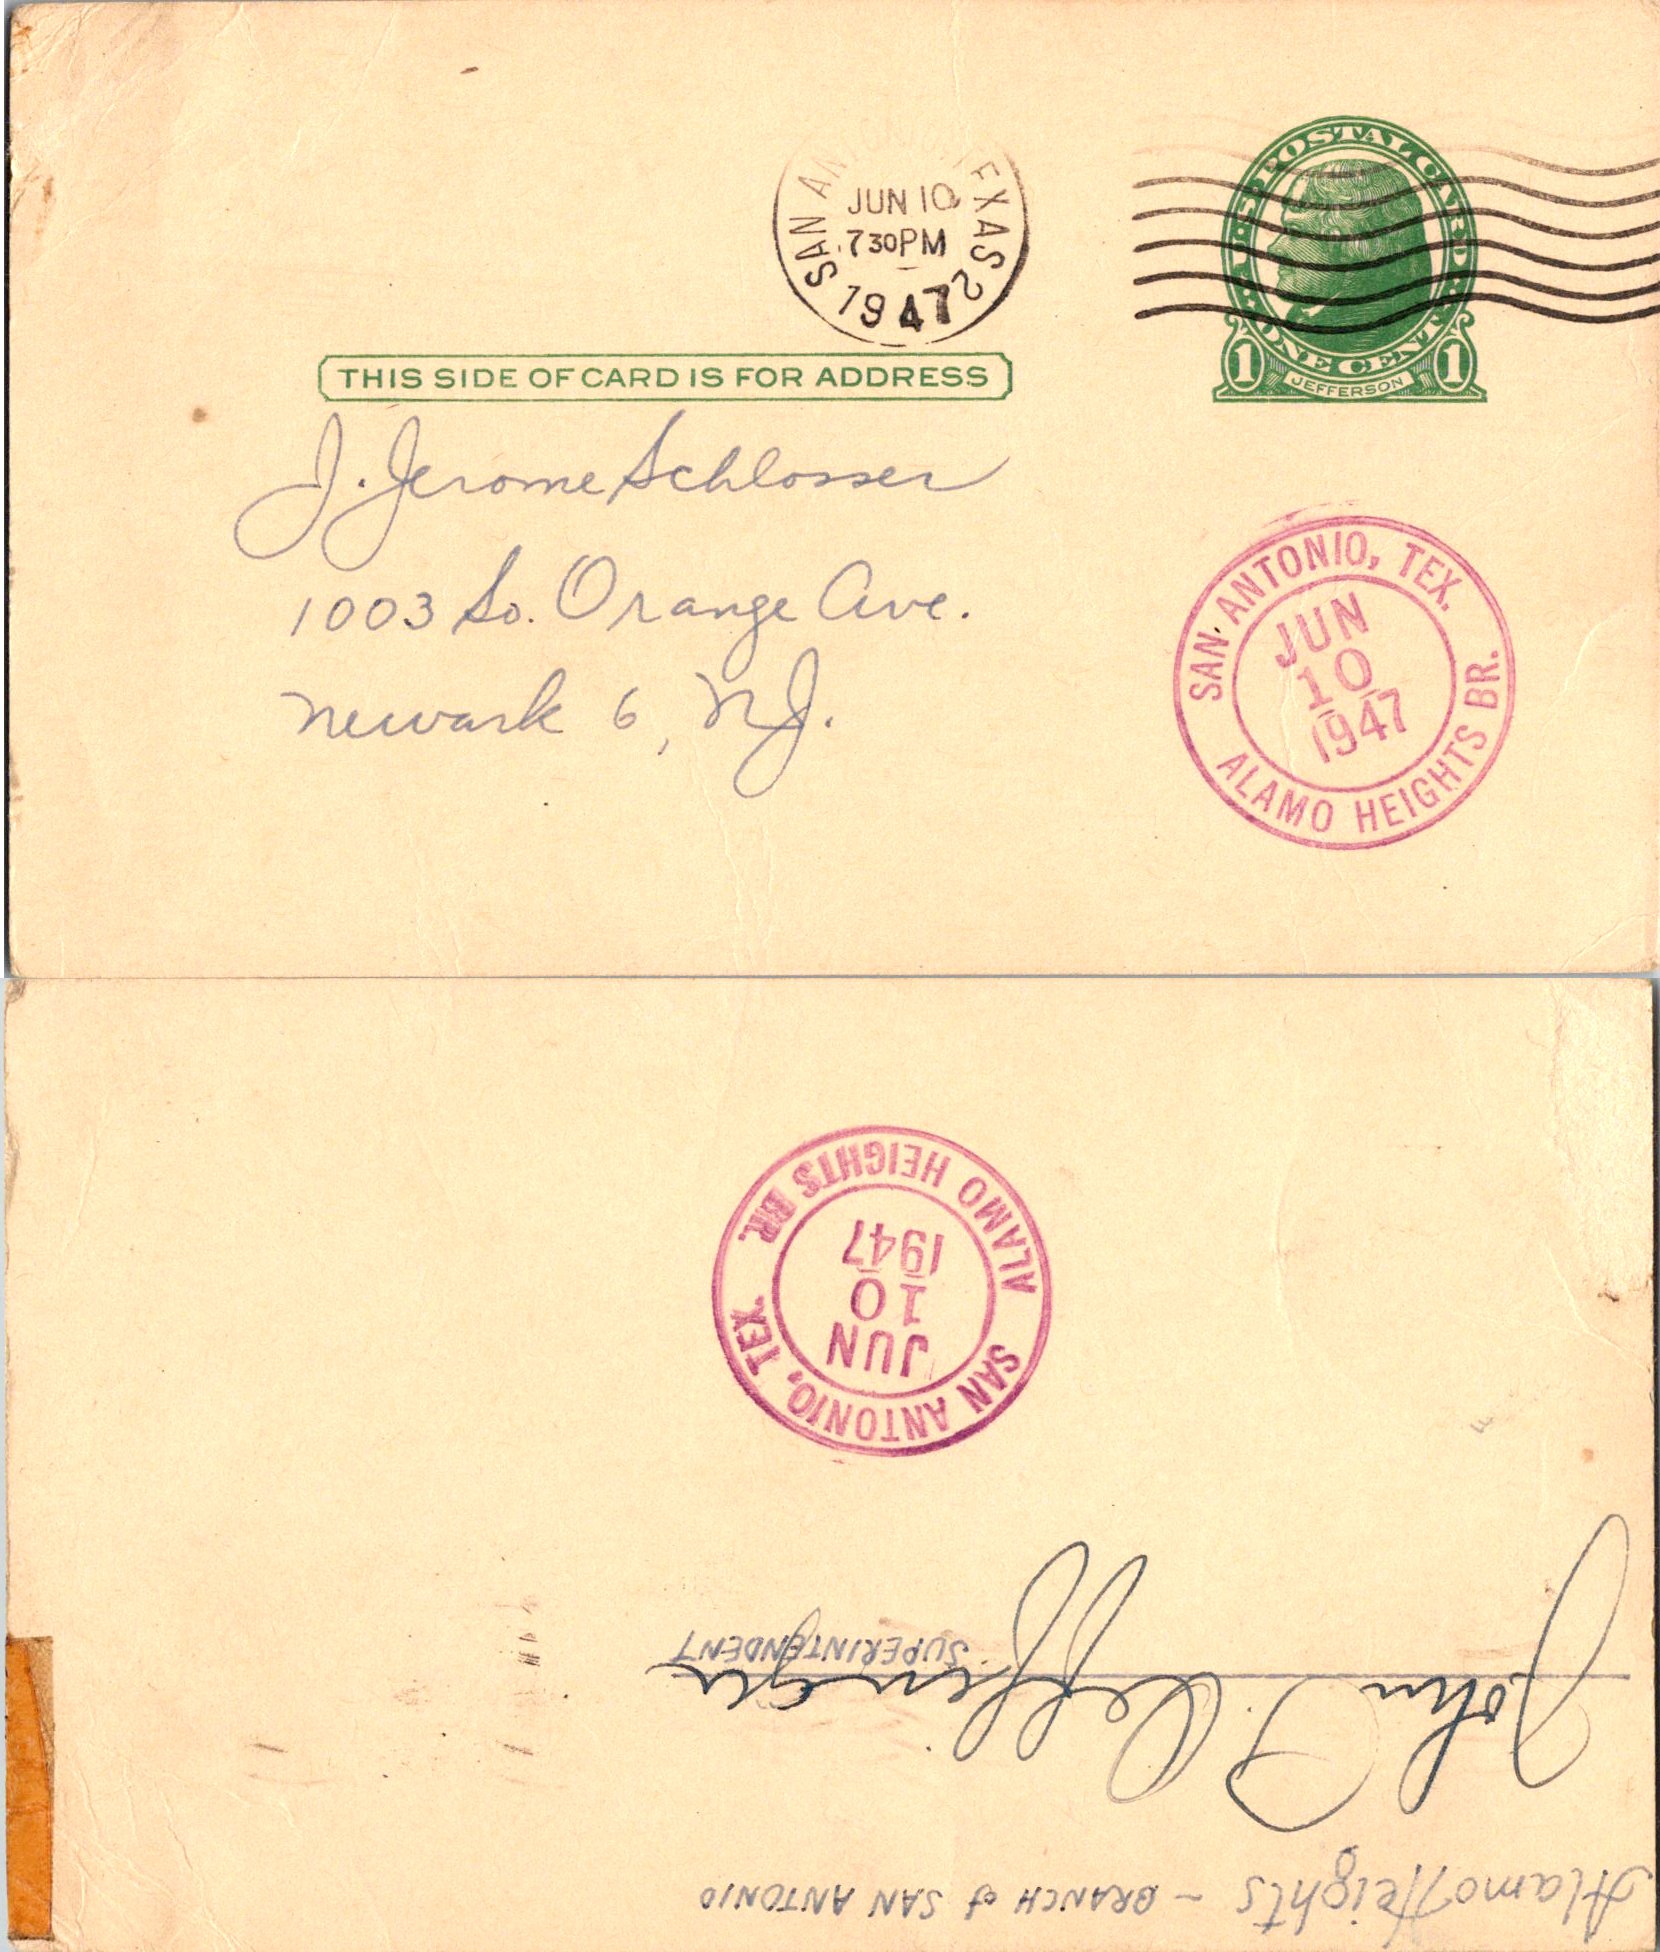 SAN ANTONIO, TEXAS 2
JUN 10
7 30 PM
1947
U.S. POSTAL CARD
ONE CENT
1 JEFFERSON 1
THIS SIDE OF CARD IS FOR ADDRESS
J. Jerome Schlosser
1003 So. Orange Ave.
Newark 6, N.J.
SAN ANTONIO, TEX.
JUN
10
1947
ALAMO HEIGHTS BR.
Alamo Heights - BRANCH of SAN ANTONIO
John F.
SUPERINTENDENT
SAN ANTONIO, TEX.
JUN
10
1947
ALAMO HEIGHTS BR.